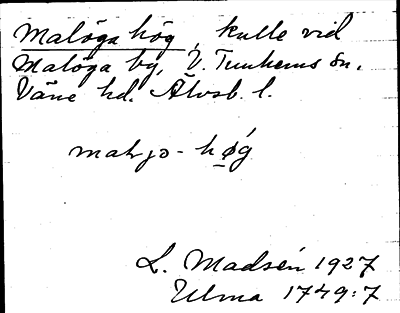 Malöga hög, kulle vid
Malöga by, V. Tunhems sn.
Väne hd. Älvsb. l.
høg
L. Madsén 1927
Ulma 1749:7